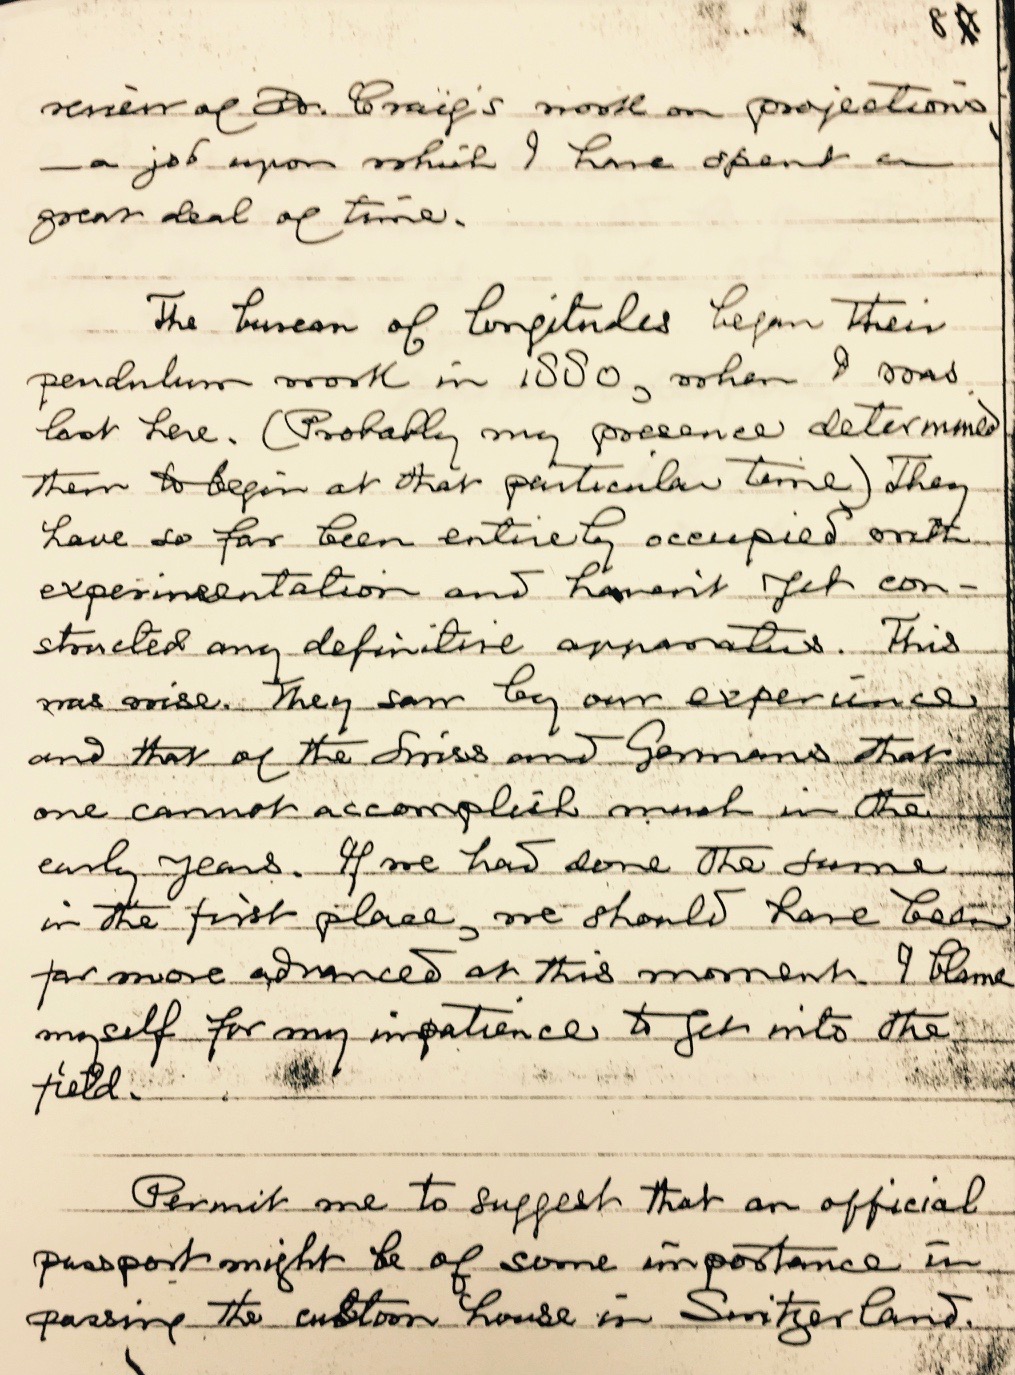 8
review of Dr. Craig's work on projections,
— a job upon which I have spent a
great deal of time.
The bureau of longitudes began their
pendulum work in 1880, when I was
last here. (Probably my presence determined
them to begin at that particular time) They
have so far been entirely occupied with
experimentation and haven't yet con-
structed any definitive apparatus. This
was wise. They saw by our experience
and that of the Swiss and Germans that
one cannot accomplish much in the
early years. If we had done the same
in the first place, we should have been
far more advanced at this moment. I blame
myself for my impatience to get into the
field.
Permit me to suggest that an official
passport might be of some importance in
passing the custom house in Switzerland.